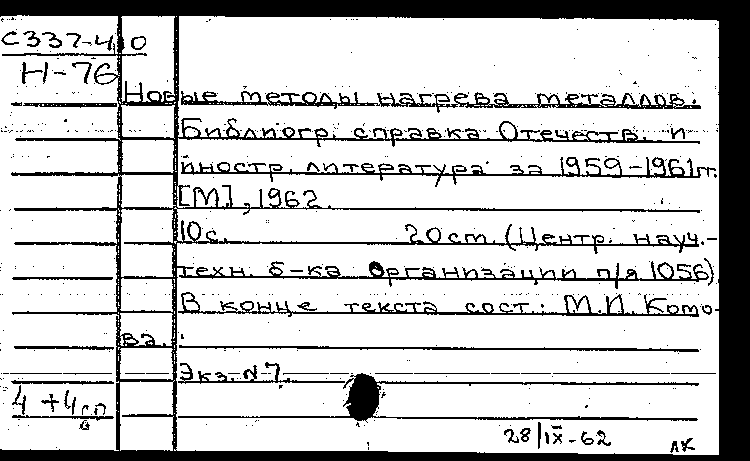 С337-410
Н-76
Новые методы нагрева металлов.
Библиогр. справка. Отечеств. и
иностр. литература за 1959-1961гг.
[М], 1962.
10с. 20см. (Центр. науч.-
техн. б-ка организации п/я 1056)
В конце текста сост.: М.И. Кото-
ва.
Экз. №7.
4 +4
28/IX-62
ЛК